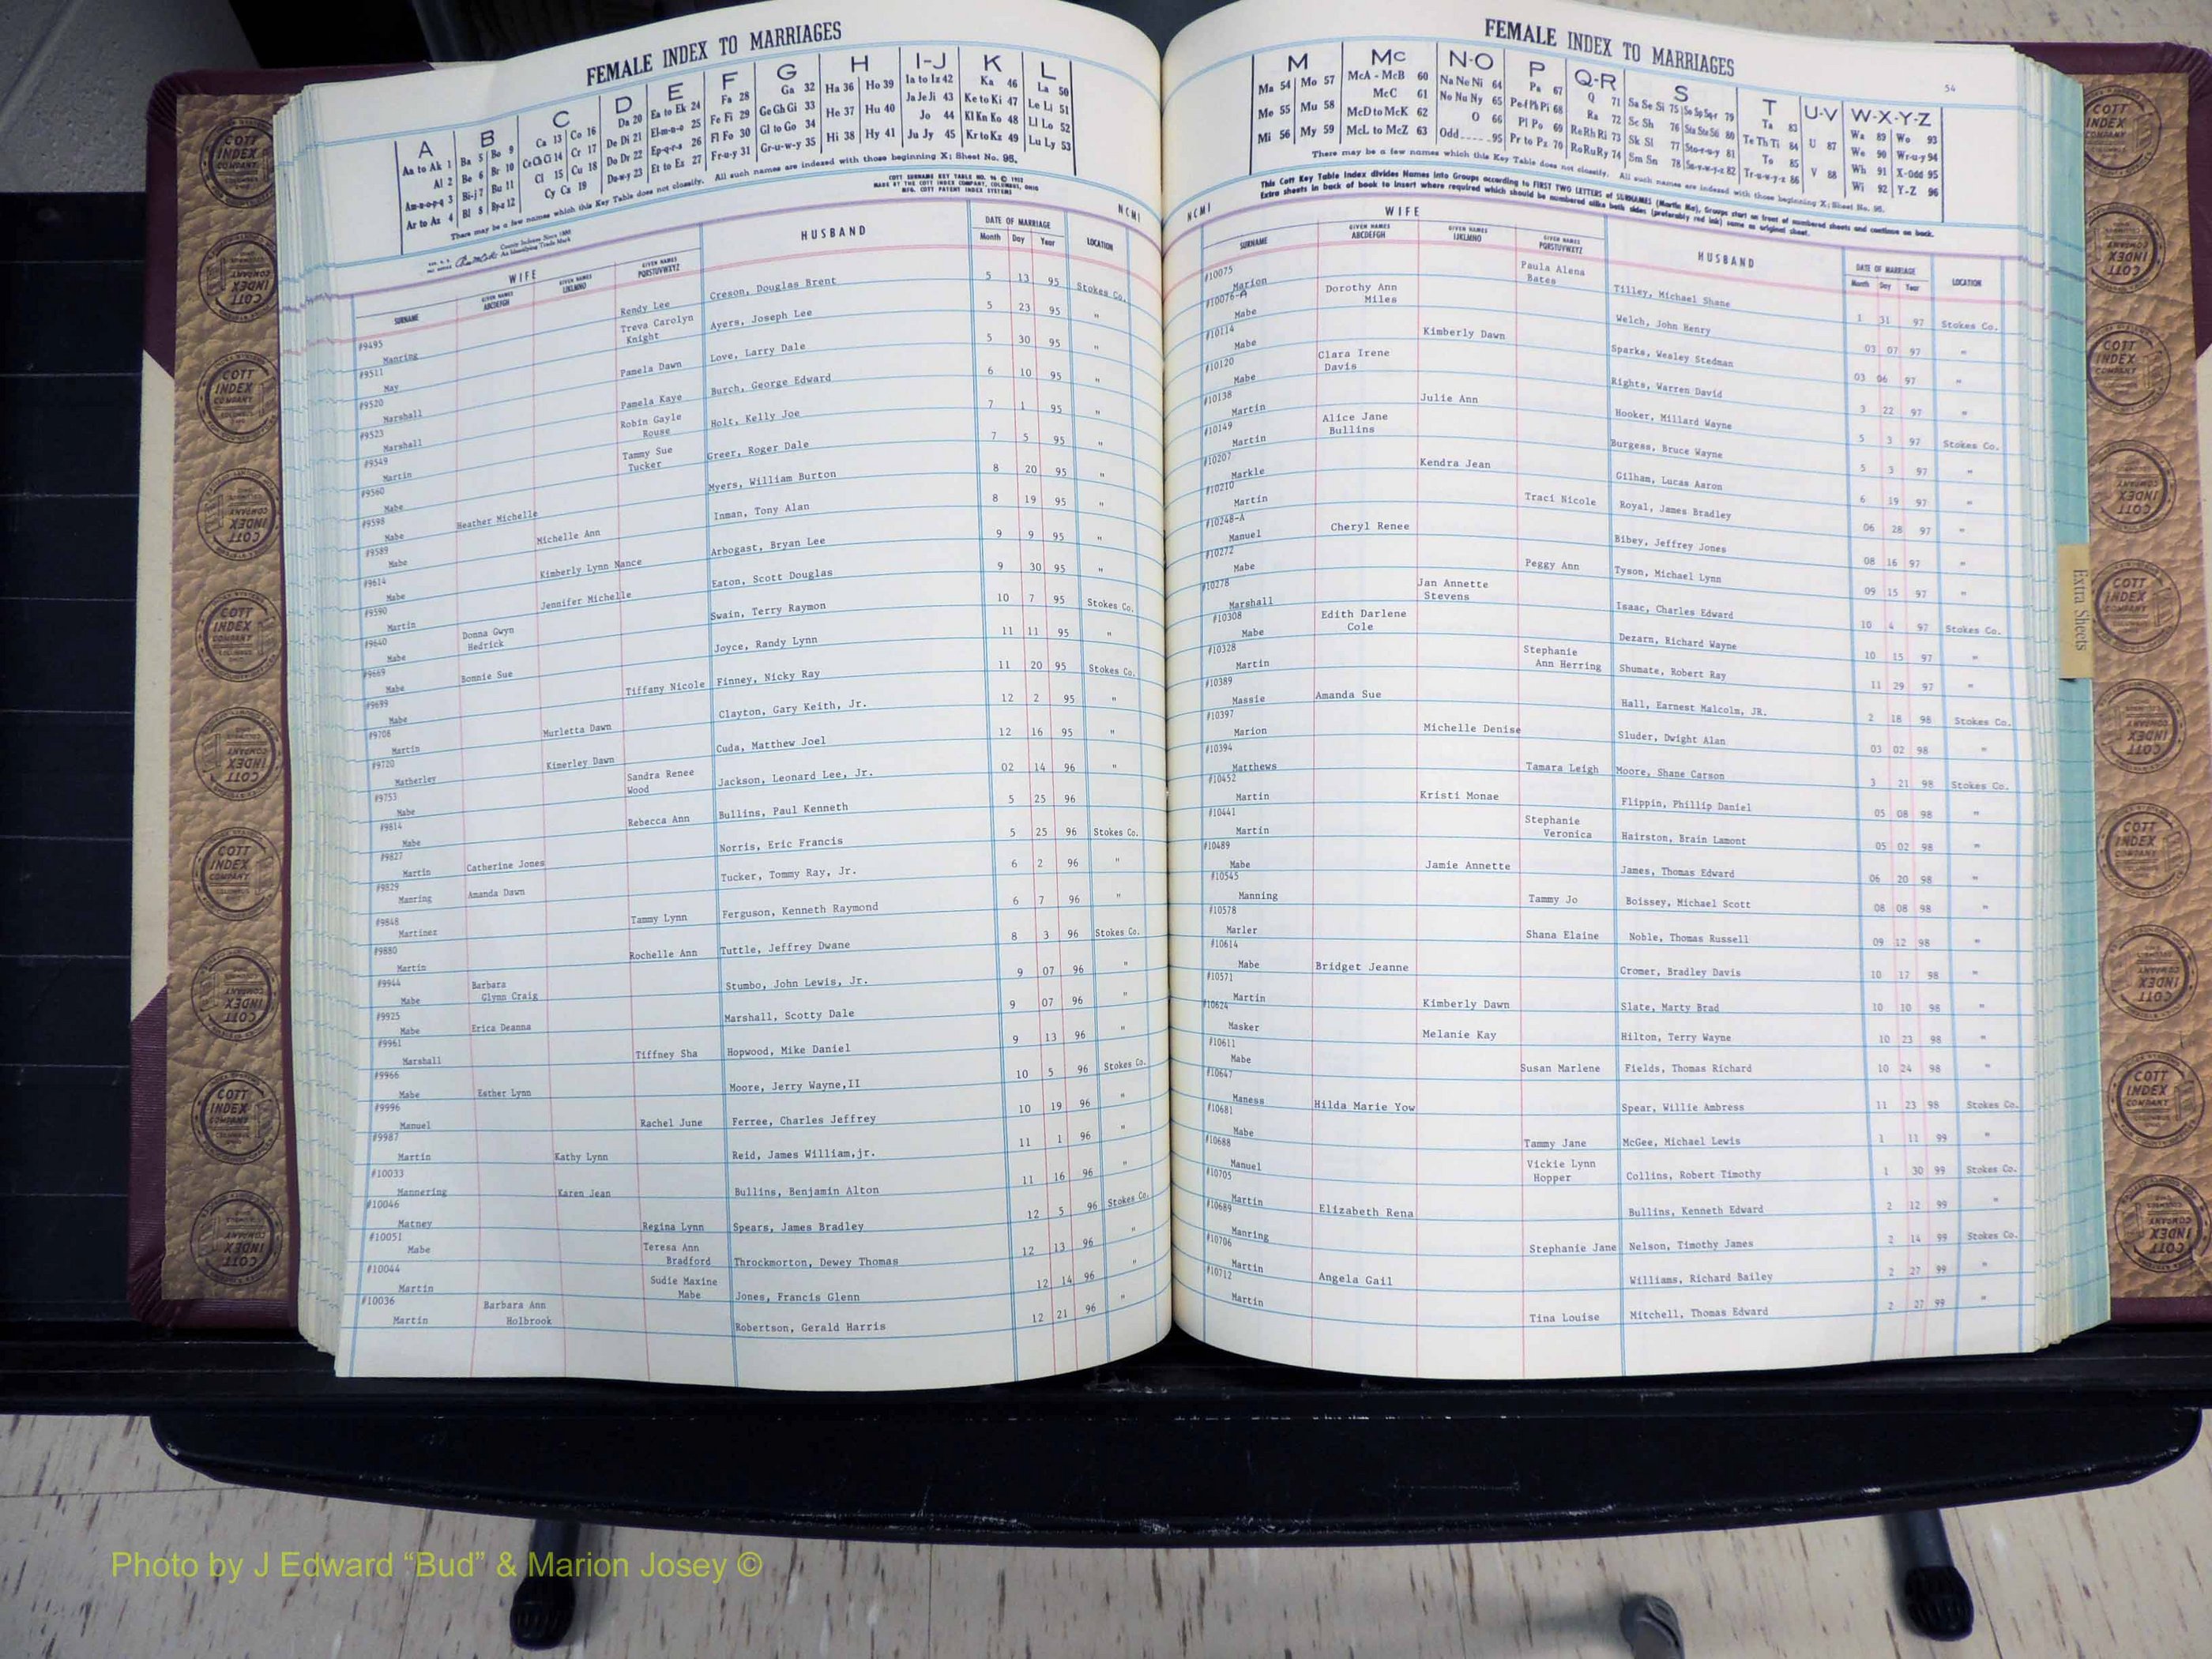 FEMALE INDEX TO MARRIAGES
A B C D E F G H I-J K L
Aa to Ak 1 Ba 5 Bo 9 Ca 13 Co 16 Da 20 Ea to Ek 24 Fa 28 Ga 32 Ha 36 Ho 39 Ia to Iz 42 Ka 46 La 50
Al 2 Be 6 Br 10 Ce Ch Ci 14 Cr 17 De Di 21 El-m-n-o 25 Fe Fi 29 Ge Gh Gi 33 He 37 Hu 40 Ja Je Ji 43 Ke to Ki 47 Le Li 51
Am-n-o-p-q 3 Bi-j 7 Bu 11 Cl 15 Cu 18 Do Dr 22 Ep-q-r-s 26 Fl Fo 30 Gl to Go 34 Hi 38 Hy 41 Jo 44 Kl Kn Ko 48 Ll Lo 52
Ar to Az 4 Bl 8 By-z 12 Cy Cz 19 Du-w-y 23 Et to Ez 27 Fr-u-y 31 Gr-u-w-y 35 Ju Jy 45 Kr to Kz 49 Lu Ly 53
There may be a few names which this Key Table does not classify. All such names are indexed with those beginning X; Sheet No. 95.
County Indexes Since 1888
An Identifying Trade Mark
COTT SURNAME KEY TABLE NO. 96 © 1952
MADE BY THE COTT INDEX COMPANY, COLUMBUS, OHIO
MFG. COTT PATENT INDEX SYSTEMS
NCMI
WIFE HUSBAND DATE OF MARRIAGE LOCATION
SURNAME GIVEN NAMES ABCDEFGH GIVEN NAMES IJKLMNO GIVEN NAMES PQRSTUVWXYZ Month Day Year
#9495 Manring Rendy Lee Creson, Douglas Brent 5 13 95 Stokes Co.
#9511 May Treva Carolyn Knight Ayers, Joseph Lee 5 23 95 "
#9520 Marshall Pamela Dawn Love, Larry Dale 5 30 95 "
#9523 Marshall Pamela Kaye Burch, George Edward 6 10 95 "
#9549 Martin Robin Gayle Rouse Holt, Kelly Joe 7 1 95 "
#9560 Mabe Tammy Sue Tucker Greer, Roger Dale 7 5 95 "
#9598 Mabe Heather Michelle Myers, William Burton 8 20 95 "
#9589 Mabe Michelle Ann Inman, Tony Alan 8 19 95 "
#9614 Mabe Kimberly Lynn Nance Arbogast, Bryan Lee 9 9 95 "
#9590 Martin Jennifer Michelle Eaton, Scott Douglas 9 30 95 "
#9640 Mabe Donna Gwyn Hedrick Swain, Terry Raymon 10 7 95 Stokes Co.
#9669 Mabe Bonnie Sue Joyce, Randy Lynn 11 11 95 "
#9699 Mabe Tiffany Nicole Finney, Nicky Ray 11 20 95 Stokes Co.
#9706 Martin Murletta Dawn Clayton, Gary Keith, Jr. 12 2 95 "
#9720 Matherley Kimerley Dawn Cuda, Matthew Joel 12 16 95 "
#9753 Mabe Sandra Renee Wood Jackson, Leonard Lee, Jr. 02 14 96 "
#9814 Mabe Rebecca Ann Bullins, Paul Kenneth 5 25 96
#9827 Martin Catherine Jones Norris, Eric Francis 5 25 96 Stokes Co.
#9829 Manring Amanda Dawn Tucker, Tommy Ray, Jr. 6 2 96 "
#9848 Martinez Tammy Lynn Ferguson, Kenneth Raymond 6 7 96 "
#9880 Martin Rochelle Ann Tuttle, Jeffrey Dwane 8 3 96 Stokes Co.
#9944 Mabe Barbara Glynn Craig Stumbo, John Lewis, Jr. 9 07 96 "
#9925 Mabe Erica Deanna Marshall, Scotty Dale 9 07 96 "
#9961 Marshall Tiffney Sha Hopwood, Mike Daniel 9 13 96 "
#9966 Mabe Esther Lynn Moore, Jerry Wayne,II 10 5 96 Stokes Co.
#9996 Manuel Rachel June Ferree, Charles Jeffrey 10 19 96 "
#9987 Martin Kathy Lynn Reid, James William,jr. 11 1 96 "
#10033 Mannering Karen Jean Bullins, Benjamin Alton 11 16 96 "
#10046 Matney Regina Lynn Spears, James Bradley 12 5 96 Stokes Co.
#10051 Mabe Teresa Ann Bradford Throckmorton, Dewey Thomas 12 13 96 "
#10044 Martin Sudie Maxine Mabe Jones, Francis Glenn 12 14 96 "
#10036 Martin Barbara Ann Holbrook Robertson, Gerald Harris 12 21 96 "
FEMALE INDEX TO MARRIAGES
54
M Mc N-O P Q-R S T U-V W-X-Y-Z
Ma 54 Mo 57 McA - McB 60 Na Ne Ni 64 Pa 67 Q 71 Sa Se Si 75 So Sp Sq-r 79 Ta 83 U 87 Wa 89 Wo 93
Me 55 Mu 58 McC 61 No Nu Ny 65 Pe-f Ph Pi 68 Ra 72 Sc Sh 76 Sta Ste Sti 80 Te Th Ti 84 V 88 We 90 Wr-u-y 94
Mi 56 My 59 McD to McK 62 O 66 Pl Po 69 Re Rh Ri 73 Sk Sl 77 Sto-r-u-y 81 To 85 Wh 91 X-Odd 95
McL to McZ 63 Odd 95 Pr to Pz 70 Ro Ru Ry 74 Sm Sn 78 Su-v-w-y-z 82 Tr-u-w-y-z 86 Wi 92 Y-Z 96
There may be a few names which this Key Table does not classify. All such names are indexed with those beginning X; Sheet No. 95.
This Cott Key Table Index divides Names into Groups according to FIRST TWO LETTERS of SURNAMES (Martin Ma), Groups start on front of numbered sheets and continue on back.
Extra sheets in back of book to insert where required which should be numbered alike both sides (preferably red ink) same as original sheet.
NCMI
WIFE HUSBAND DATE OF MARRIAGE LOCATION
SURNAME GIVEN NAMES ABCDEFGH GIVEN NAMES IJKLMNO GIVEN NAMES PQRSTUVWXYZ Month Day Year
#10075 Marion Paula Alena Bates Tilley, Michael Shane 1 31 97 Stokes Co.
#10076-A Mabe Dorothy Ann Miles Welch, John Henry 03 07 97 "
#10114 Mabe Kimberly Dawn Sparks, Wesley Stedman 03 06 97 "
#10120 Mabe Clara Irene Davis Rights, Warren David 3 22 97 "
#10138 Martin Julie Ann Hooker, Millard Wayne 5 3 97 Stokes Co.
#10149 Martin Alice Jane Bullins Burgess, Bruce Wayne 5 3 97 "
#10207 Markle Kendra Jean Gilham, Lucas Aaron 6 19 97 "
#10210 Martin Traci Nicole Royal, James Bradley 06 28 97 "
#10248-A Manuel Cheryl Renee Bibey, Jeffrey Jones 08 16 97 "
#10272 Mabe Peggy Ann Tyson, Michael Lynn 09 15 97 "
#10278 Marshall Jan Annette Stevens Isaac, Charles Edward 10 4 97 Stokes Co.
#10308 Mabe Edith Darlene Cole Dezarn, Richard Wayne 10 15 97 "
#10328 Martin Stephanie Ann Herring Shumate, Robert Ray 11 29 97 "
#10389 Massie Amanda Sue Hall, Earnest Malcolm, JR. 2 18 98 Stokes Co.
#10397 Marion Michelle Denise Sluder, Dwight Alan 03 02 98 "
#10394 Matthews Tamara Leigh Moore, Shane Carson 3 21 98 Stokes Co.
#10452 Martin Kristi Monae Flippin, Phillip Daniel 05 08 98 "
#10441 Martin Stephanie Veronica Hairston, Brain Lamont 05 02 98 "
#10489 Mabe Jamie Annette James, Thomas Edward 06 20 98 "
#10545 Manning Tammy Jo Boissey, Michael Scott 08 08 98 "
#10578 Marler Shana Elaine Noble, Thomas Russell 09 12 98 "
#10614 Mabe Bridget Jeanne Cromer, Bradley Davis 10 17 98 "
#10571 Martin Kimberly Dawn Slate, Marty Brad 10 10 98 "
#10624 Masker Melanie Kay Hilton, Terry Wayne 10 23 98 "
#10611 Mabe Susan Marlene Fields, Thomas Richard 10 24 98 "
#10647 Maness Hilda Marie Yow Spear, Willie Ambress 11 23 98 Stokes Co.
#10681 Mabe Tammy Jane McGee, Michael Lewis 1 11 99 "
#10688 Manuel Vickie Lynn Hopper Collins, Robert Timothy 1 30 99 Stokes Co.
#10705 Martin Elizabeth Rena Bullins, Kenneth Edward 2 12 99 "
#10689 Manring Stephanie Jane Nelson, Timothy James 2 14 99 Stokes Co.
#10706 Martin Angela Gail Williams, Richard Bailey 2 27 99 "
#10712 Martin Tina Louise Mitchell, Thomas Edward 2 27 99 "
Extra Sheets
COTT INDEX COMPANY
Photo by J Edward “Bud” & Marion Josey ©